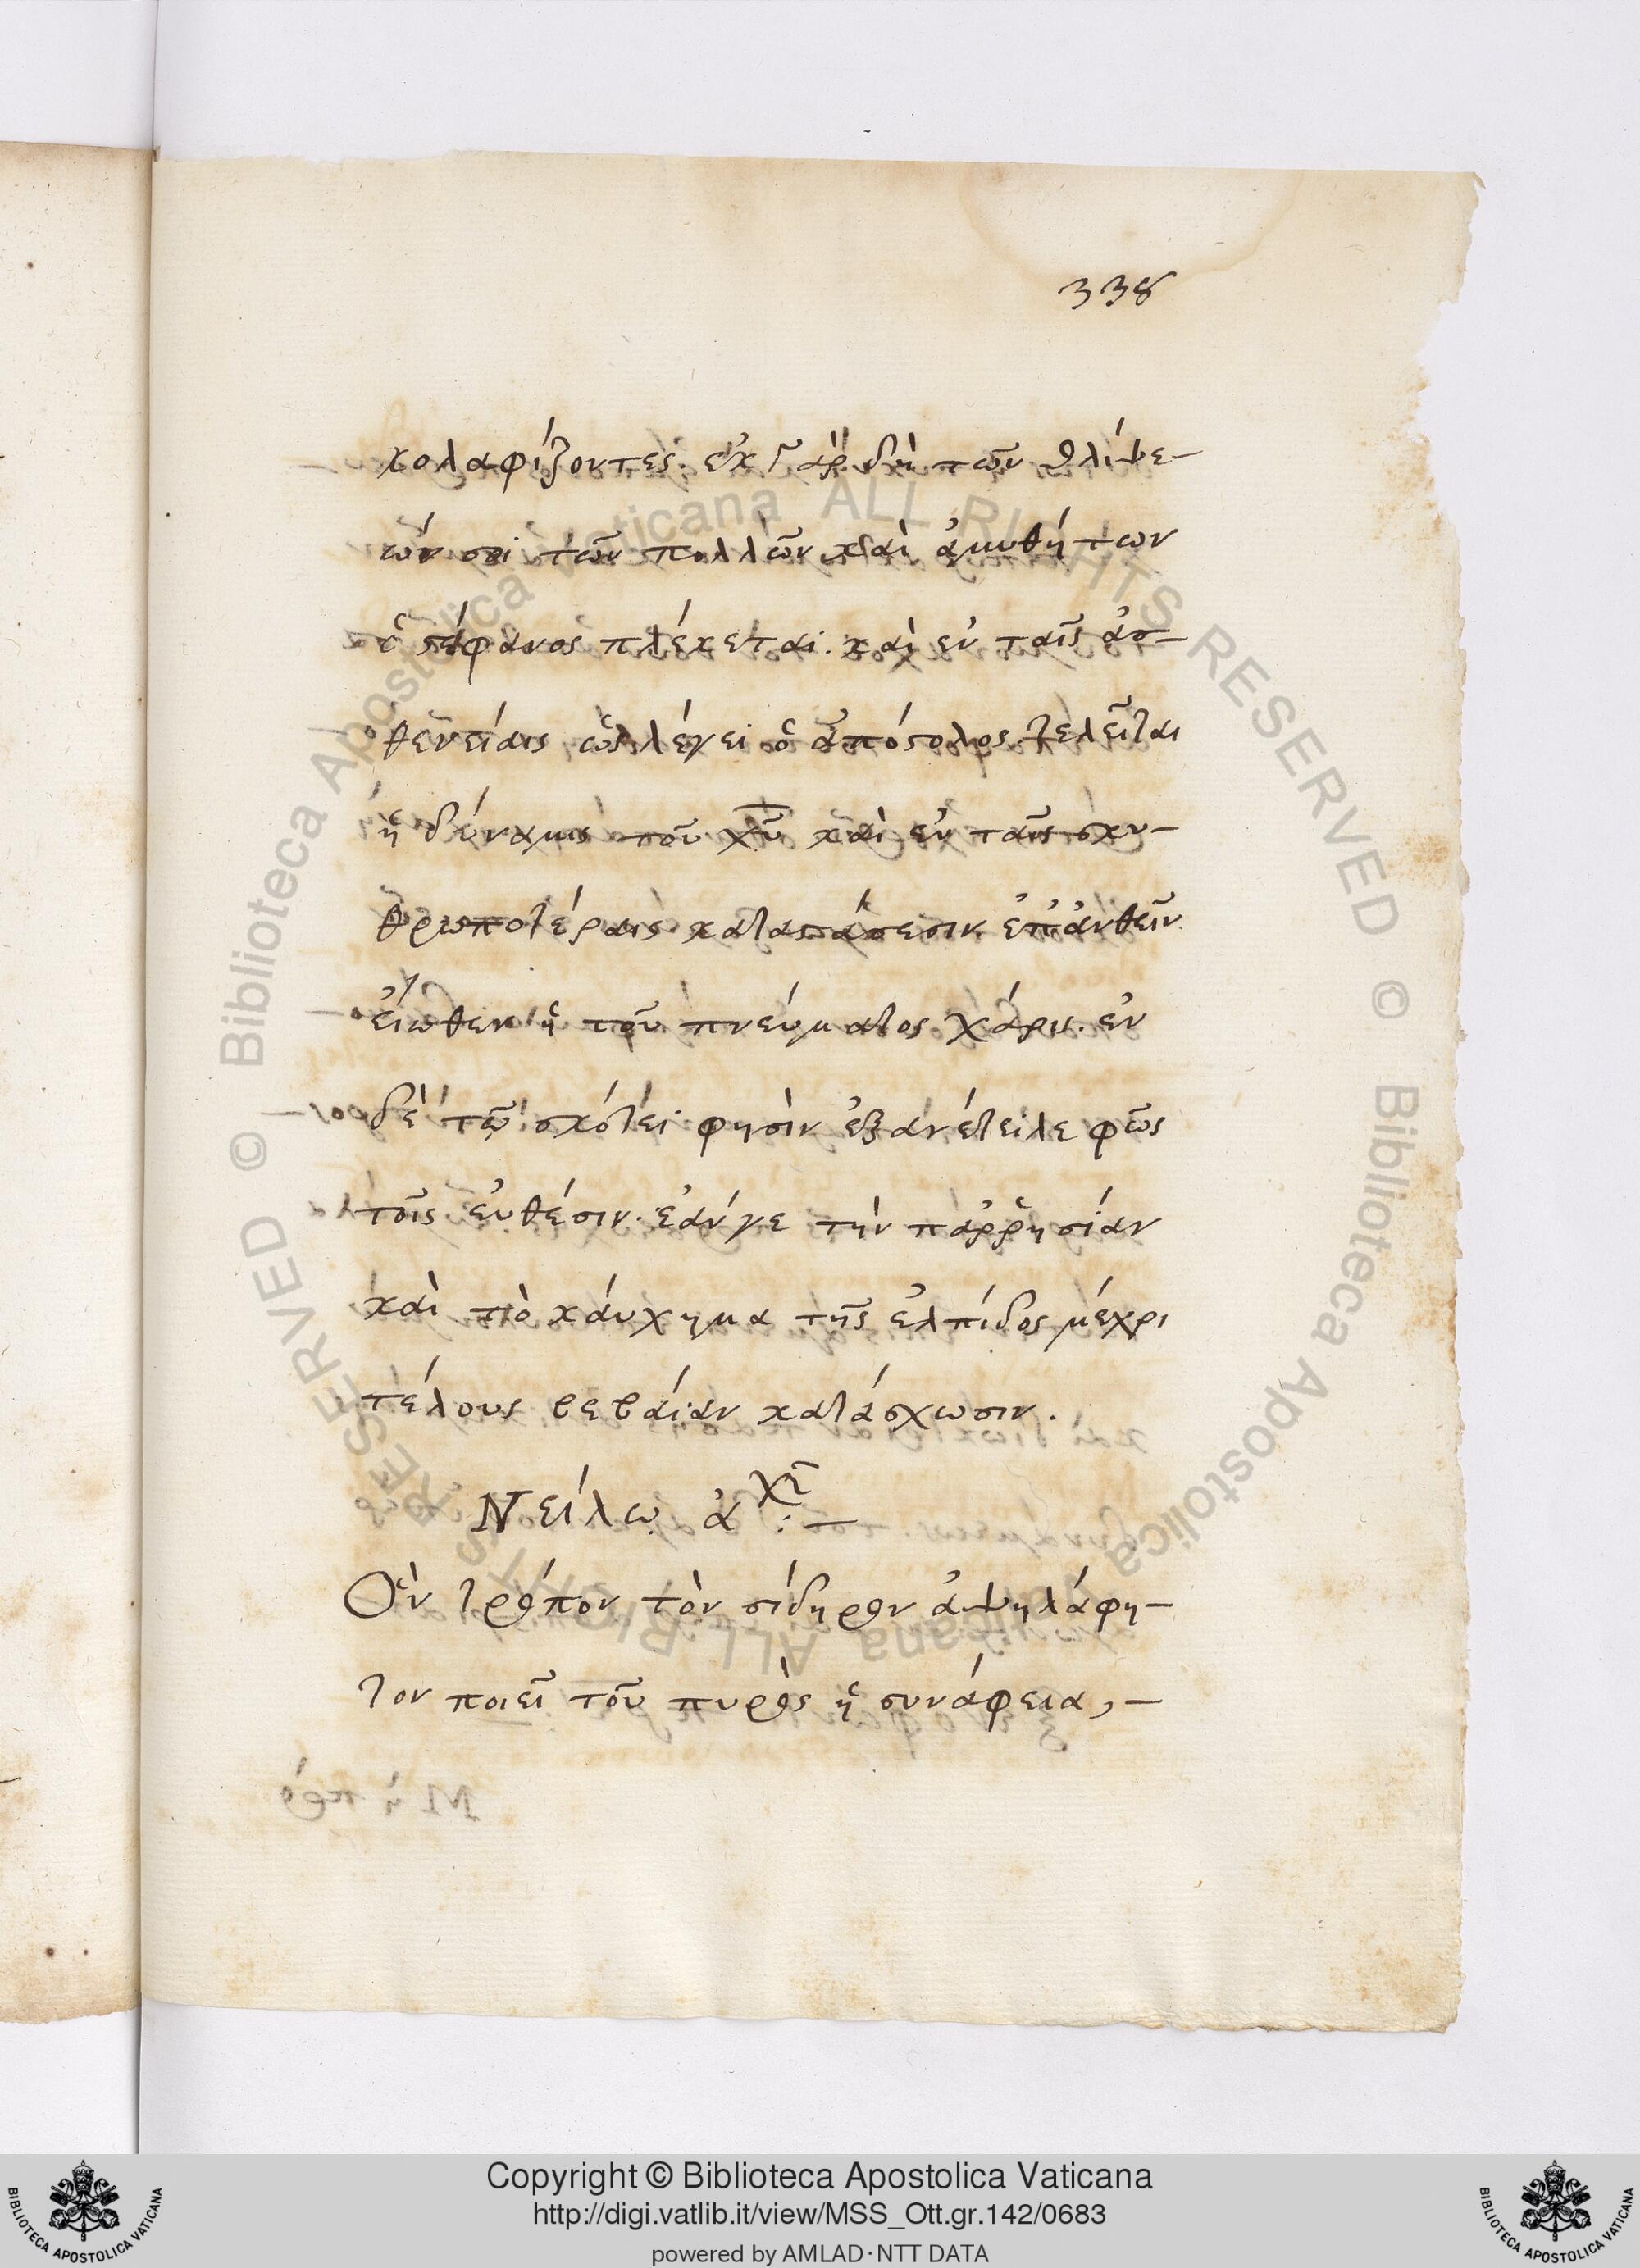 338
κολαφίζοντες. ἐκ γὰρ δὴ τῶν θλίψε-
ών σοι τῶν πολλῶν καὶ ἀμυθήτων
ὁ στέφανος πλέκεται. καὶ ἐν ταῖς ἀσ-
θενείαις ὡς λέγει ὁ ἀπόστολος τελεῖται
ἡ δύναμις τοῦ χυ καὶ ἐν ταῖς σκυ-
θρωποτέραις καταστάσεσιν ἐπἀνθεῖν
εἴωθεν ἡ τοῦ πνεύματος χάρις. ἐν
δὲ τῷ σκότει φησὶν ἐξανέτειλε φῶς
τοῖς εὐθέσιν. ἐάνγε τὴν παῤῥησίαν
καὶ τὸ κάυχημα τῆς ἐλπίδος μέχρι
τέλους βεβαίαν κατάσχωσιν.
Νείλῳ ἀχι :-
Ὃν τρόπον τὸν σίδηρον ἀψηλάφη-
τον ποιεῖ τοῦ πυρὸς ἡ συνάφεια,-
© Biblioteca Apostolica Vaticana ALL RIGHTS RESERVED
© Biblioteca Apostolica Vaticana ALL RIGHTS RESERVED
Copyright © Biblioteca Apostolica Vaticana
http://digi.vatlib.it/view/MSS_Ott.gr.142/0683
powered by AMLAD·NTT DATA
BIBLIOTECA APOSTOLICA VATICANA
BIBLIOTECA APOSTOLICA VATICANA